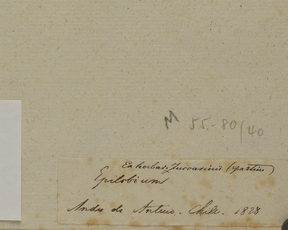 M 55-80/40
Ex herbar. Zuccarinii (partim)
Epilobium
Andes de Antuco. Chile. 1828